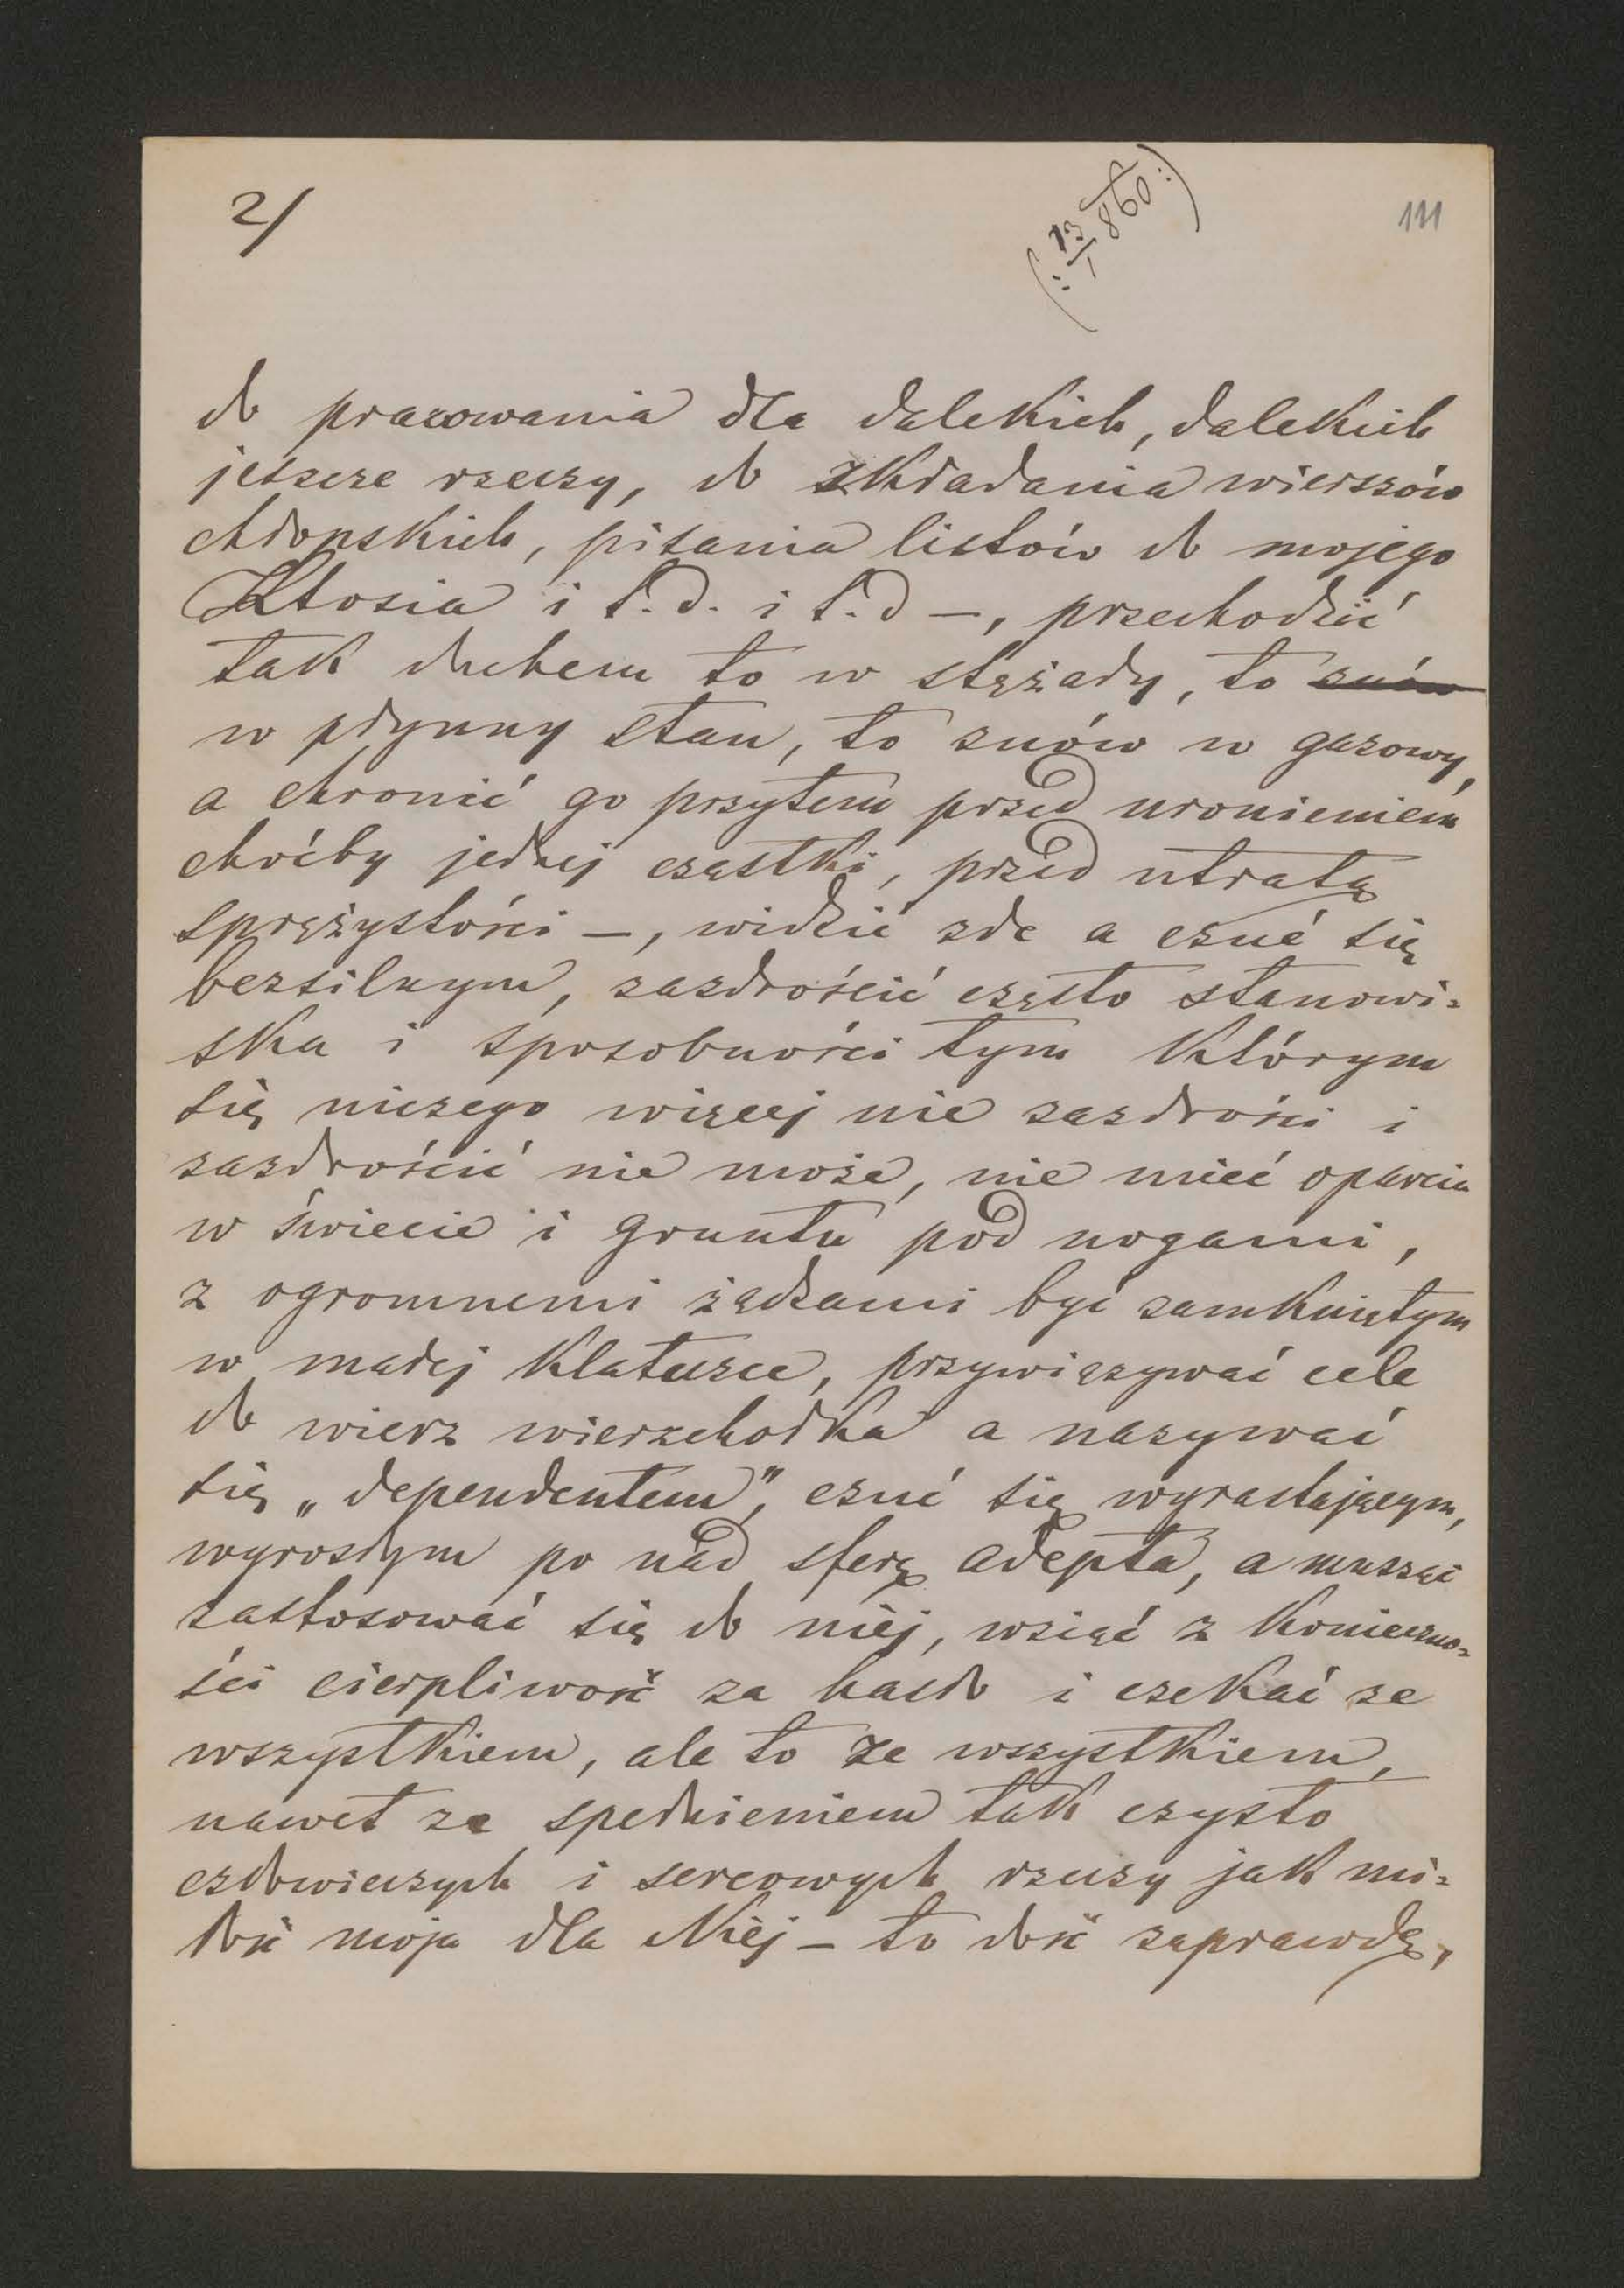 2/
(: 13/I 860 :)
111
do pracowania dla dalekich, dalekich
jeszcze rzeczy, do składania wierszów
chłopskich, pisania listów do mojego
Ktosia i t.d. i t.d –, przechodzić
tak duchem to w stężały, to znów
w płynny stan, to znów w gazowy,
a chronić go przytem przed uronieniem
choćby jednej cząstki, przed utratą
sprężystości –, widzić złe a czuć się
bezsilnym, zazdrościć często stanowi=
ska i sposobności tym którym
się niczego więcej nie zazdrości i
zazdrościć nie może, nie mieć oparcia
w świecie i gruntu pod nogami,
z ogromnemi żądzami być zamkniętym
w małej klateczce, przywięzywać cele
do wierz wierzchołka a nazywać
się „dependentem", czuć się wyrastającym,
wyrosłym po nad sferę adepta, a musząc
zastosować się do niéj, wziąć z konieczno=
ści cierpliwość za hasło i czekać ze
wszystkiem, ale to ze wszystkiem,
nawet ze spełnieniem tak czysto
człowieczych i sercowych rzeczy jak mi=
łość moja dla Niéj – to dość zaprawdę,